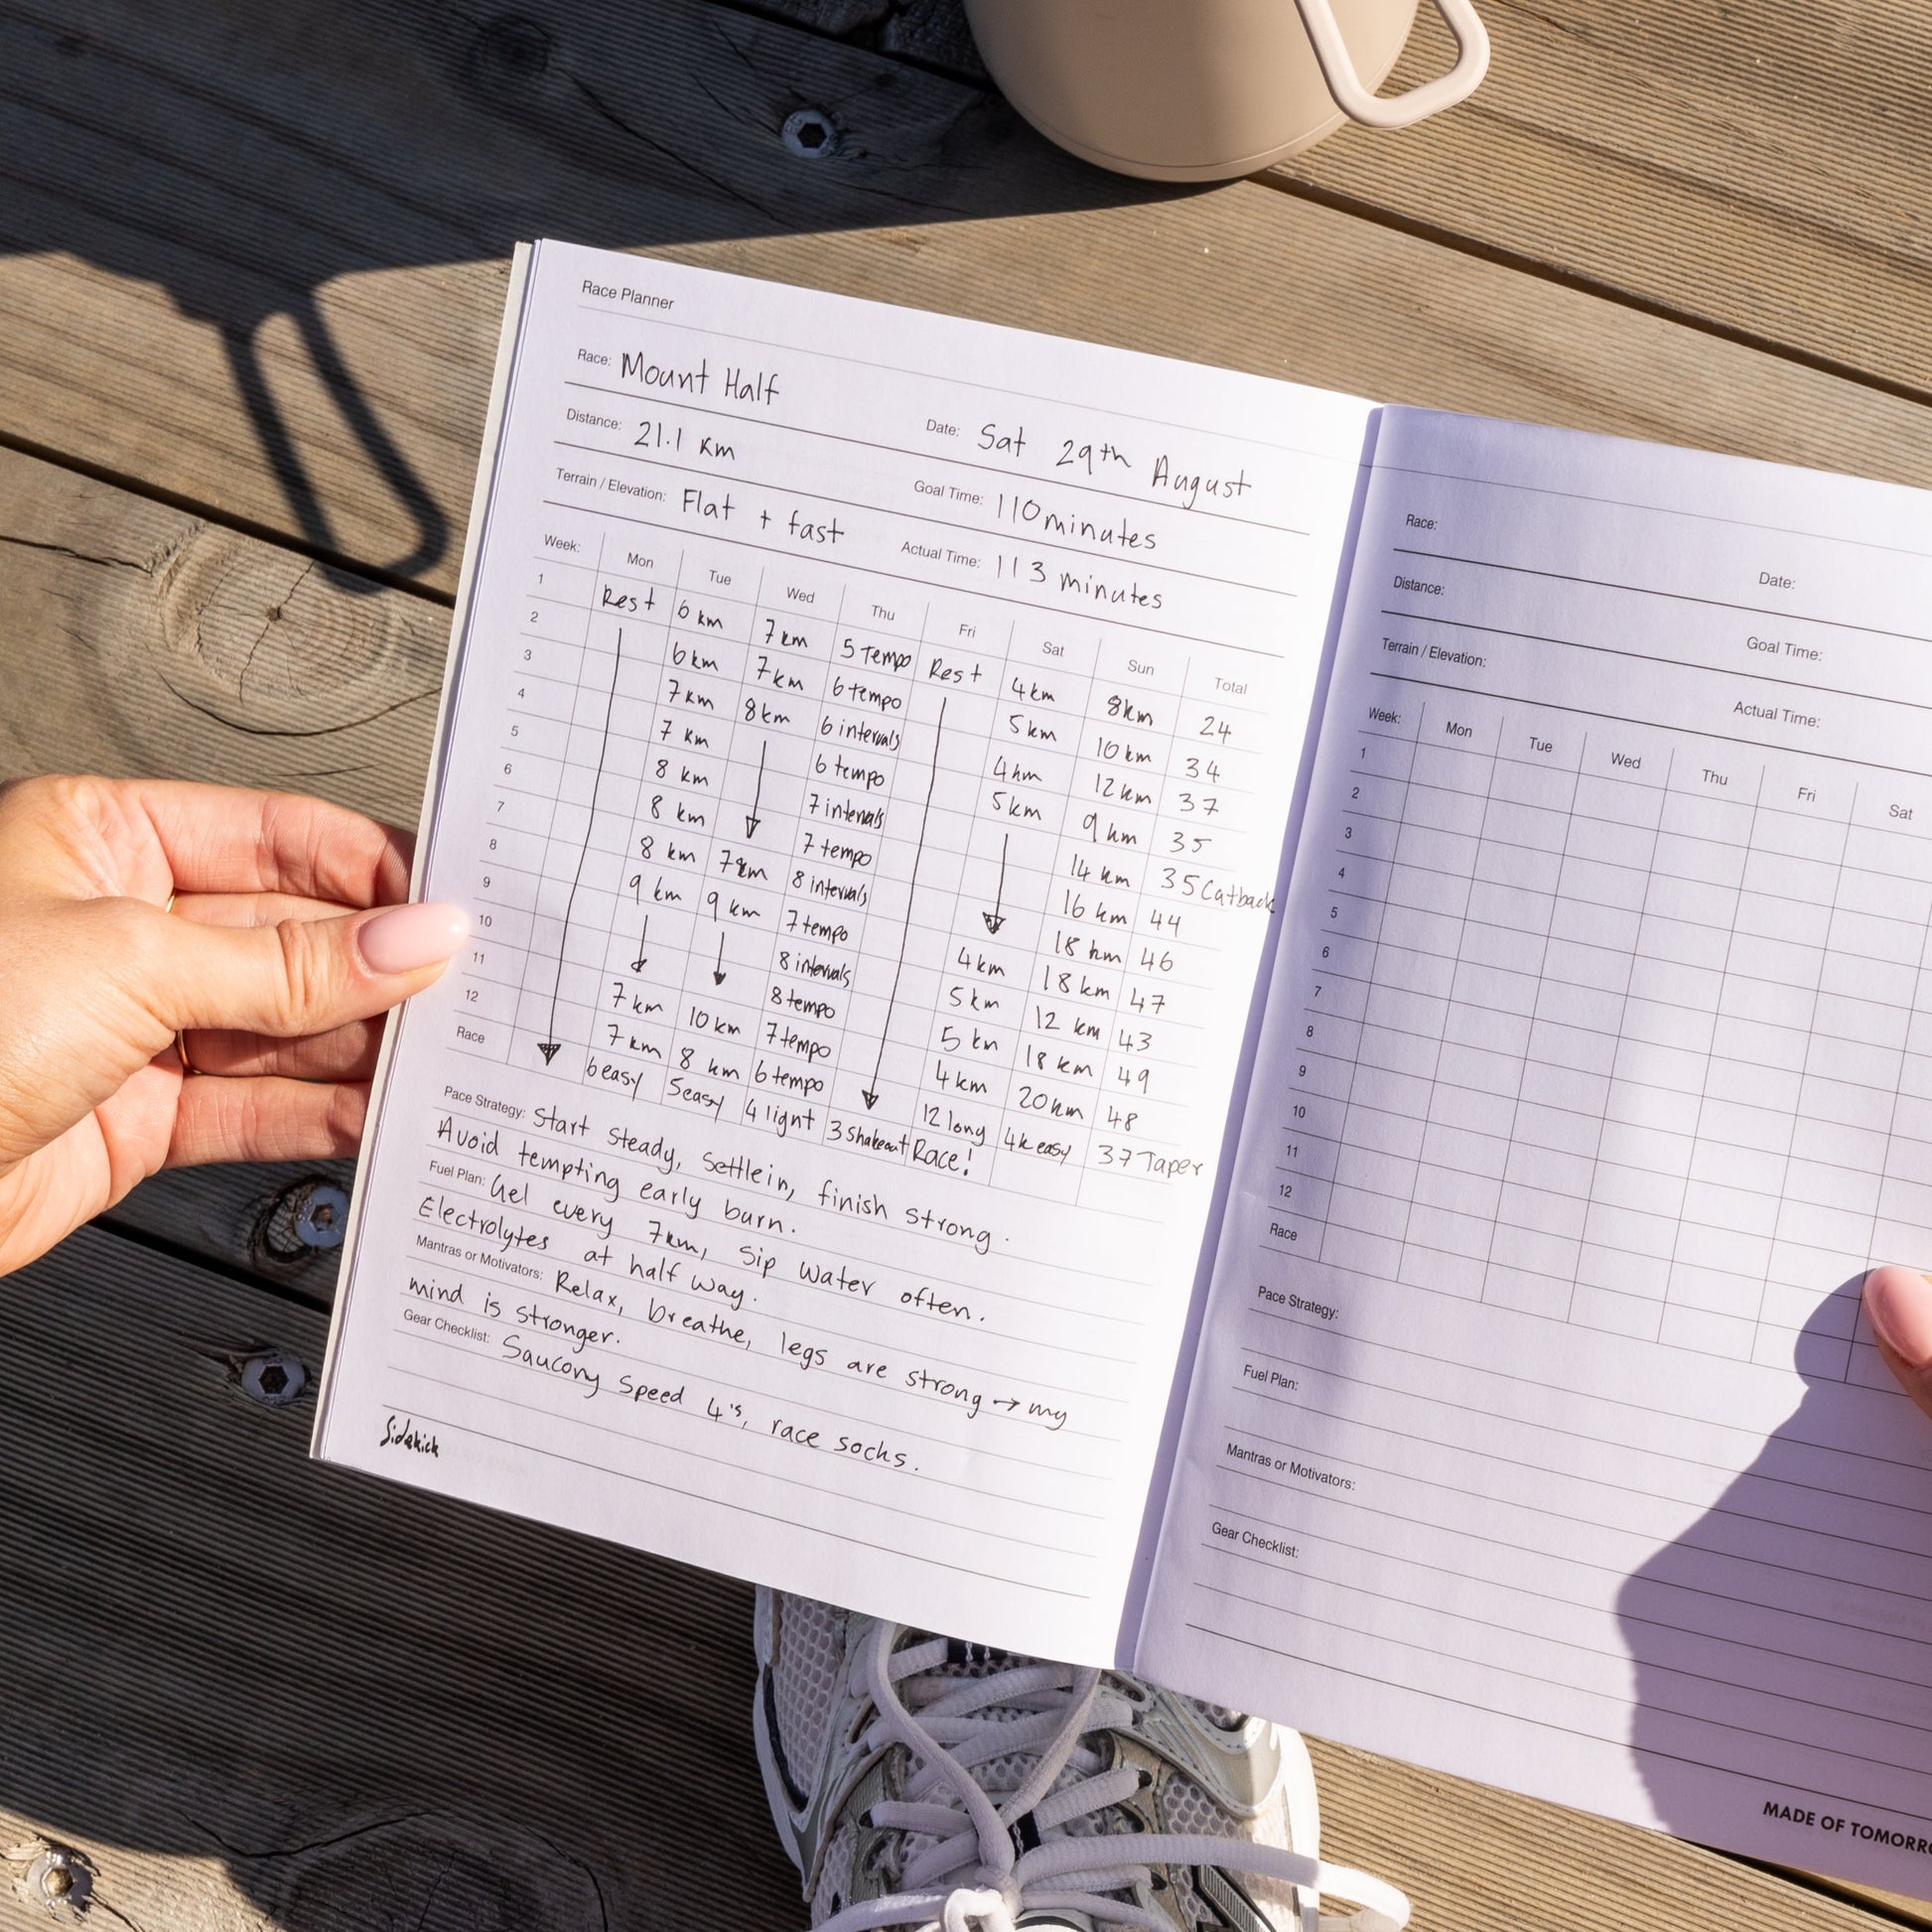 Race Planner
Race: Mount Half
Date: Sat 29th August
Distance: 21.1 km
Goal Time: 110 minutes
Terrain / Elevation: Flat + fast
Actual Time: 113 minutes
Week: Mon Tue Wed Thu Fri Sat Sun Total
1 Rest 6 km 7 km 5 Tempo Rest 4 km 8km 24
2 6 km 7 km 6 tempo 5 km 10 km 34
3 7 km 8 km 6 intervals 4 km 12 km 37
4 7 km 6 tempo 5 km 9 km 35
5 8 km 7 intervals 14 km 35 Cutback
6 8 km 7 tempo 16 km 44
7 8 km 8 intervals 18 km 46
8 9 km 9 km 7 tempo 4 km 18 km 47
9 8 intervals 5 km 12 km 43
10 8 tempo 5 km 18 km 49
11 7 km 10 km 7 tempo 4 km 20 km 48
12 7 km 8 km 6 tempo 12 long 4k easy 37 Taper
Race 6 easy 5 easy 4 light 3 shakeout Race!
Pace Strategy: Start steady, settle in, finish strong.
Avoid tempting early burn.
Fuel Plan: Gel every 7km, sip water often.
Electrolytes at half way.
Mantras or Motivators: Relax, breathe, legs are strong → my
mind is stronger.
Gear Checklist: Saucony Speed 4's, race socks.
Sidekick
Race:
Date:
Distance:
Goal Time:
Terrain / Elevation:
Actual Time:
Week: Mon Tue Wed Thu Fri Sat
1
2
3
4
5
6
7
8
9
10
11
12
Race
Pace Strategy:
Fuel Plan:
Mantras or Motivators:
Gear Checklist:
MADE OF